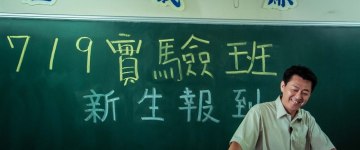 719實驗班
新生報到